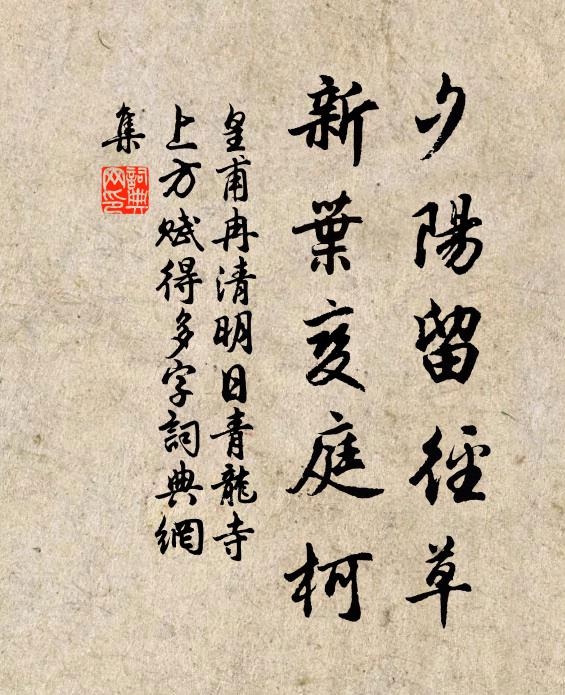 夕陽留徑草
新葉变庭柯
皇甫冉清明日青龍寺
上方賦得多字詞典網
集
詞典网印